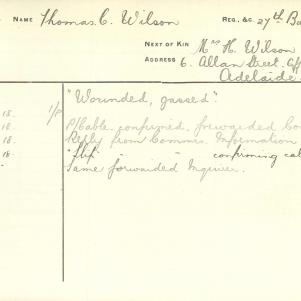 NAME Thomas C. Wilson REG. &C. 27th Ba
NEXT OF KIN Mrs H. Wilson
ADDRESS 6. Allan Street.
Adelaide
"Wounded, gassed".
18. 1/P P/Cable. confirmed, forwarded Co
18. Reply from Commrs. Information
18. " " confirming cab
Same forwarded Inquirer.